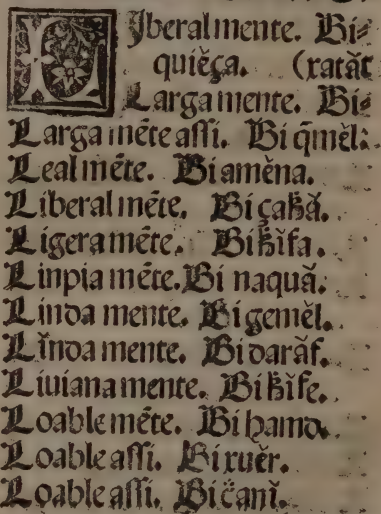 LIberalmente. Bi⸗
quiĕça. (xatāt
Larga mente. Bi⸗
Larga mēte assi. Bi q̄mĕl.
Leal mēte. Bi amĕna.
Liberal mēte. Bi çahă.
Ligera mēte. Bi hĭfa.
Linpia mēte. Bi naquă.
Linda mente. Bi gemĕl.
Lĩnda mente. Bi darăf.
Liuiana mente. Bi hĭfe.
Loable mēte. Bi hamd.
Loable assi. Bi xuĕr.
Loable assi. Bi c̈anĭ.